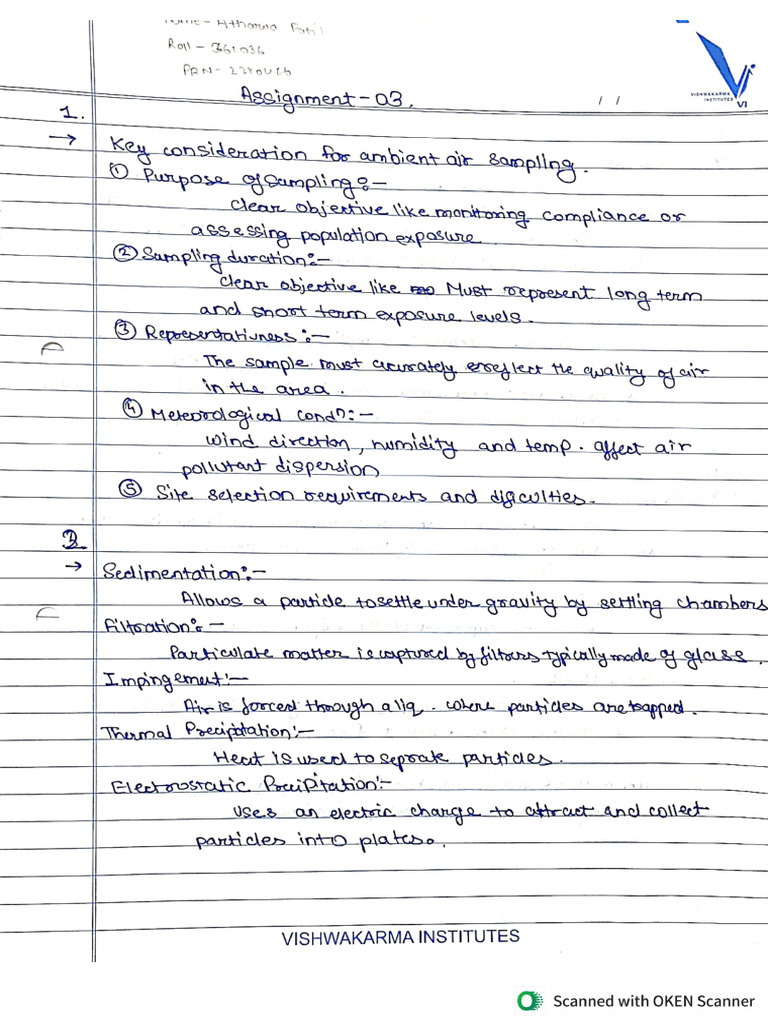 Name - Atharva Patil
Roll - 361036
PRN-
VISHWAKARMA
INSTITUTES
VI
Assignment - 03.
/ /
1.
→ Key consideration for ambient air sampling.
① Purpose of sampling:-
Clear objective like monitoring compliance or
assessing population exposure
② Sampling duration:-
Clear objective like Must represent long term
and short term exposure levels.
③ Representativness:-
The sample must accurately reflect the quality of air
in the area.
④ Meteorological condn:-
Wind direction, humidity and temp. affect air
pollutant dispersion
⑤ Site selection requirements and difficulties.
2.
→ Sedimentation:-
Allows a particle to settle under gravity by settling chambers
Filtration:-
Particulate matter is captured by filters typically made of glass.
Impingement:-
Air is forced through a liq. where particles are trapped.
Thermal Precipitation:-
Heat is used to seprate particles.
Electrostatic Precipitation:-
Uses an electric charge to attract and collect
particles into plates.
VISHWAKARMA INSTITUTES
Scanned with OKEN Scanner